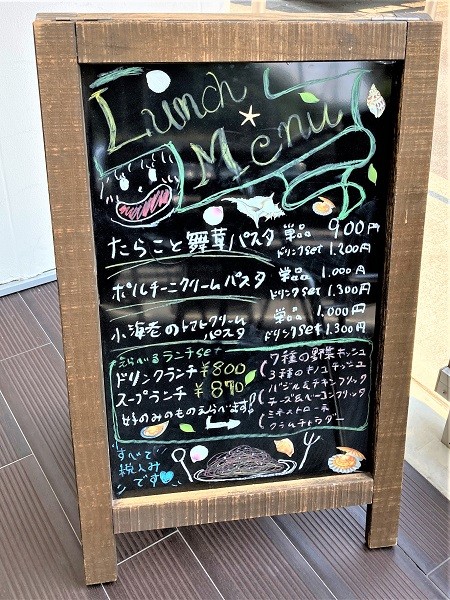 Lunch
Menu
たらこと舞茸パスタ 単品 900円
ドリンクset 1.200円
ポルチーニクリームパスタ 単品 1.000円
ドリンクset 1.300円
小海老のトマトクリームパスタ 単品 1,000円
ドリンクset 1.300円
えらべるランチset
ドリンクランチ ¥800
スープランチ ¥870
お好みのものえらべます!
7種の野菜キッシュ
3種のキノコキッシュ
バジル&チキンブリック
チーズ&ベーコンブリック
ミネストローネ
クラムチャウダー
すべて
税込み
です